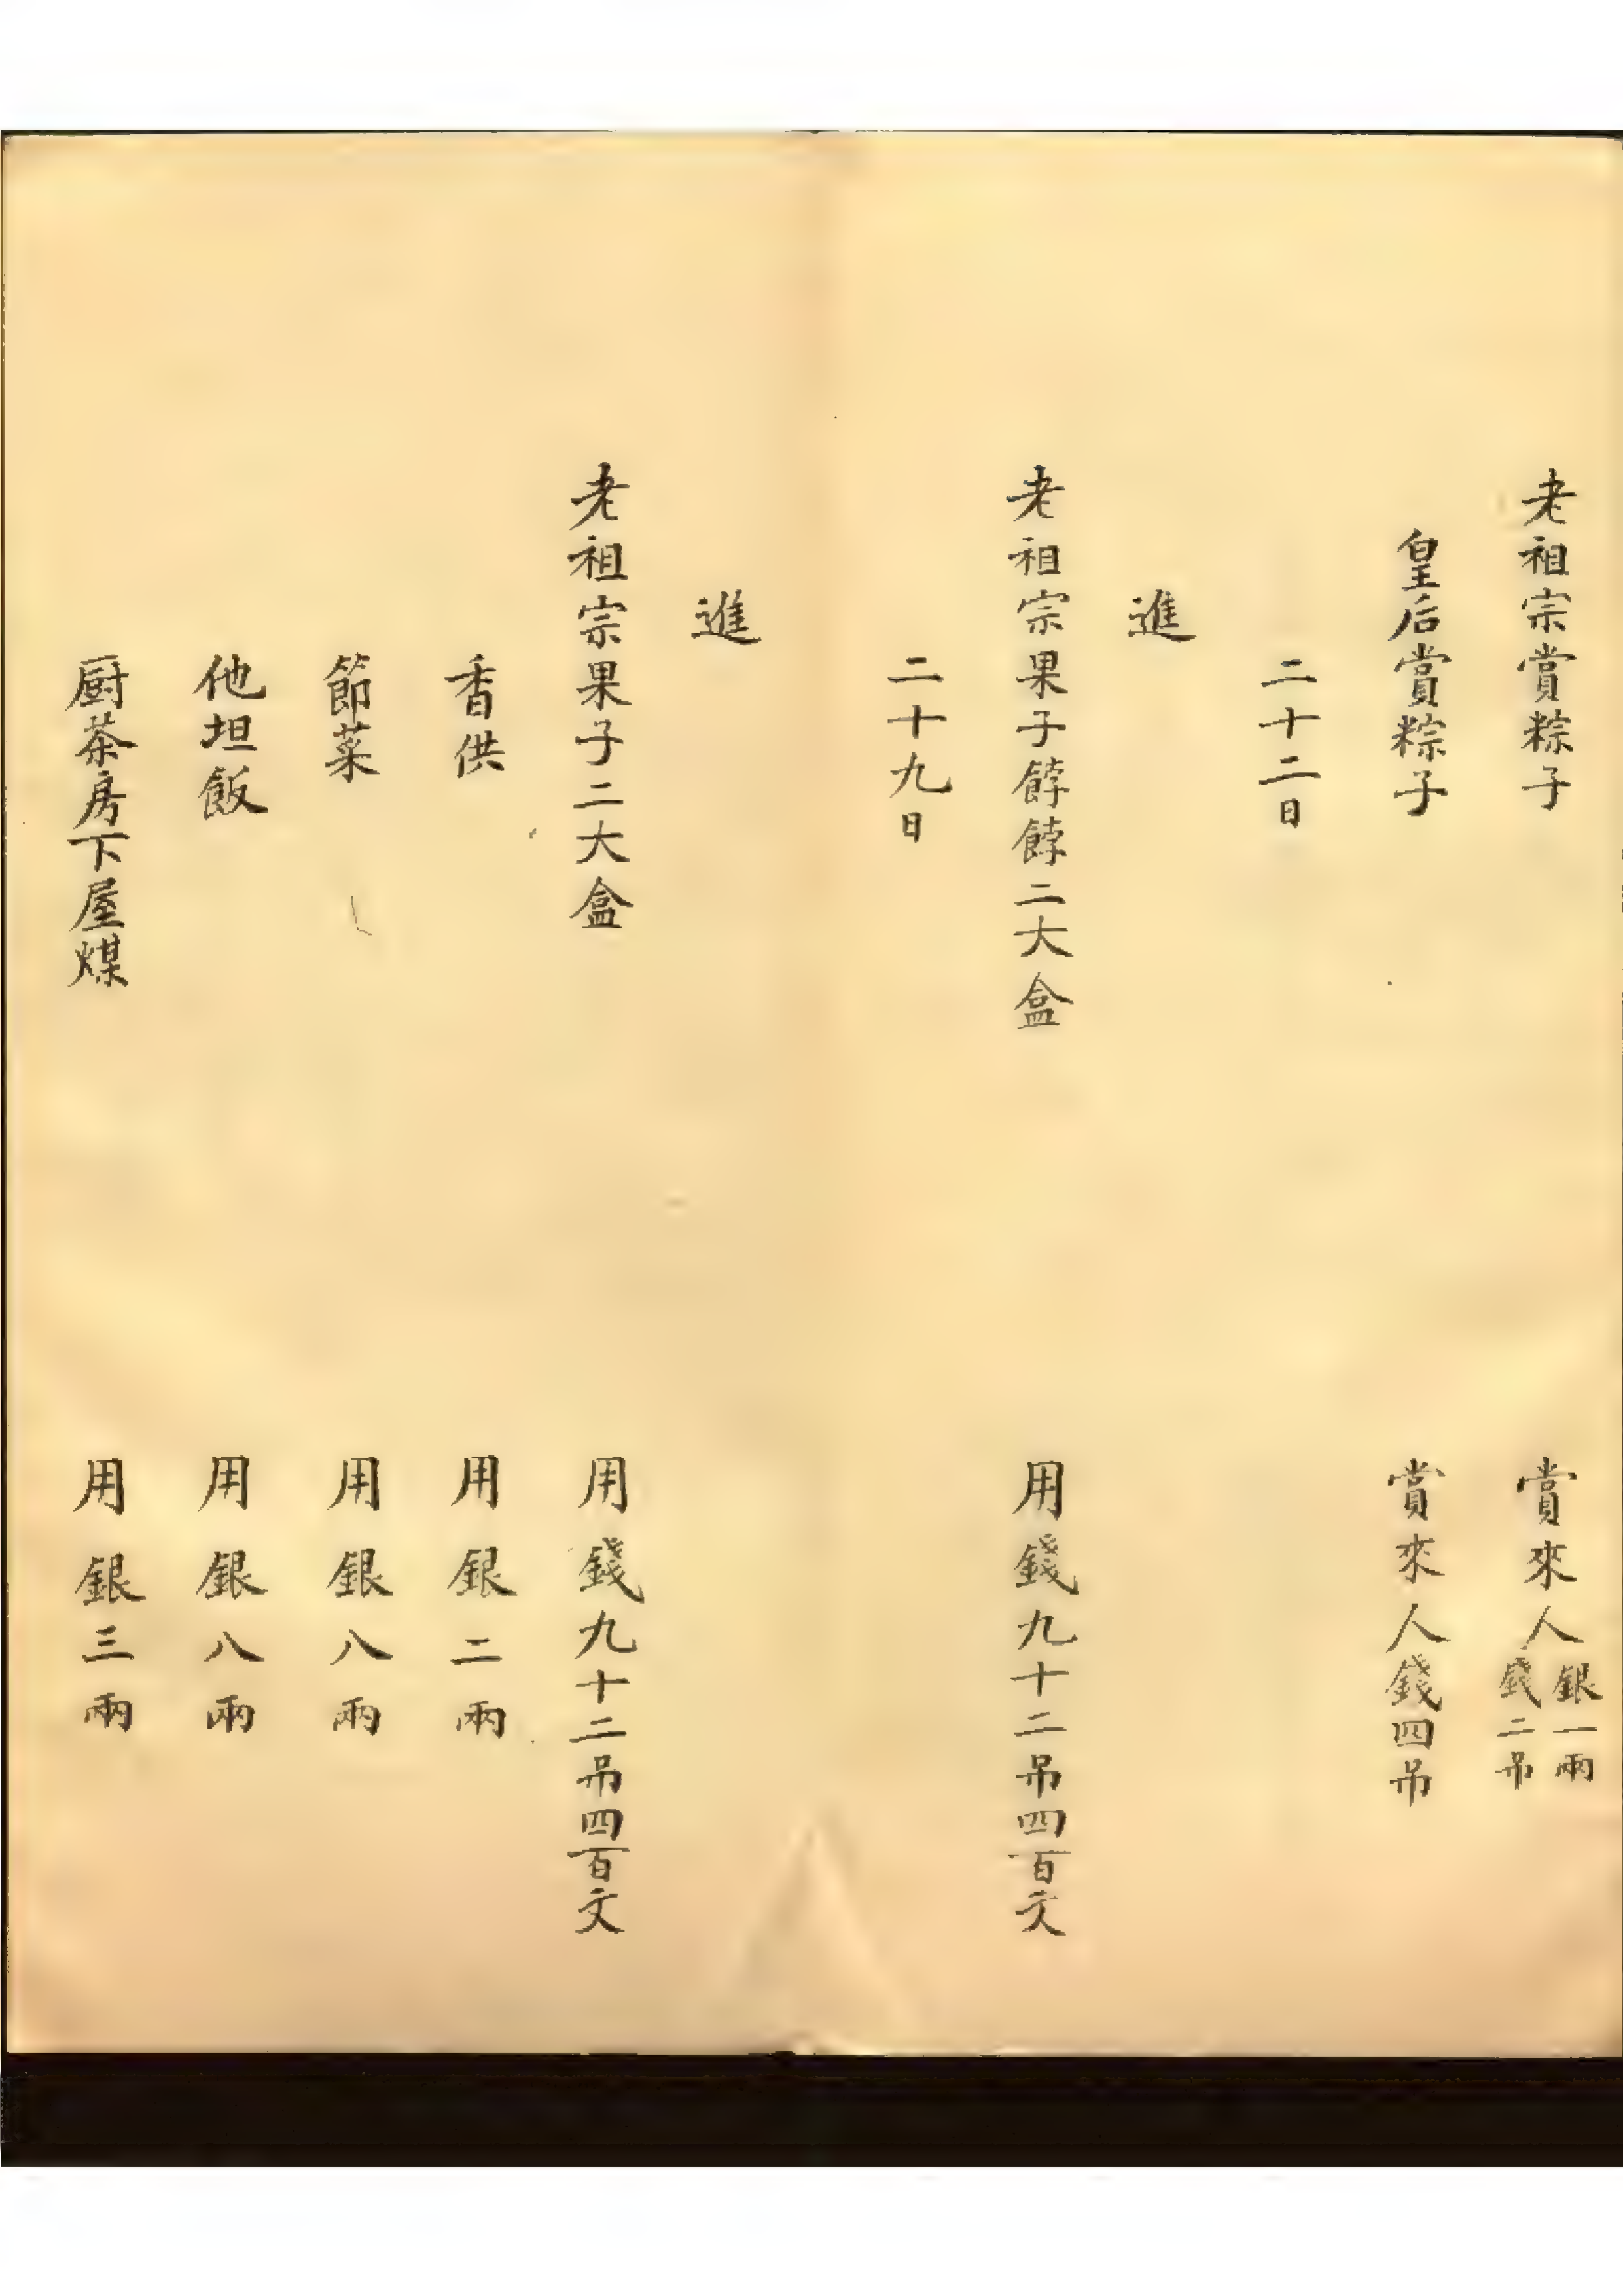 老祖宗賞粽子 賞來人銀一兩錢二吊
皇后賞粽子 賞來人錢四吊
二十二日
進
老祖宗果子餑餑二大盒 用錢九十二吊四百文
二十九日
進
老祖宗果子二大盒 用錢九十二吊四百文
香供 用銀二兩
節菜 用銀八兩
他坦飯 用銀八兩
厨茶房下屋煤 用銀三兩